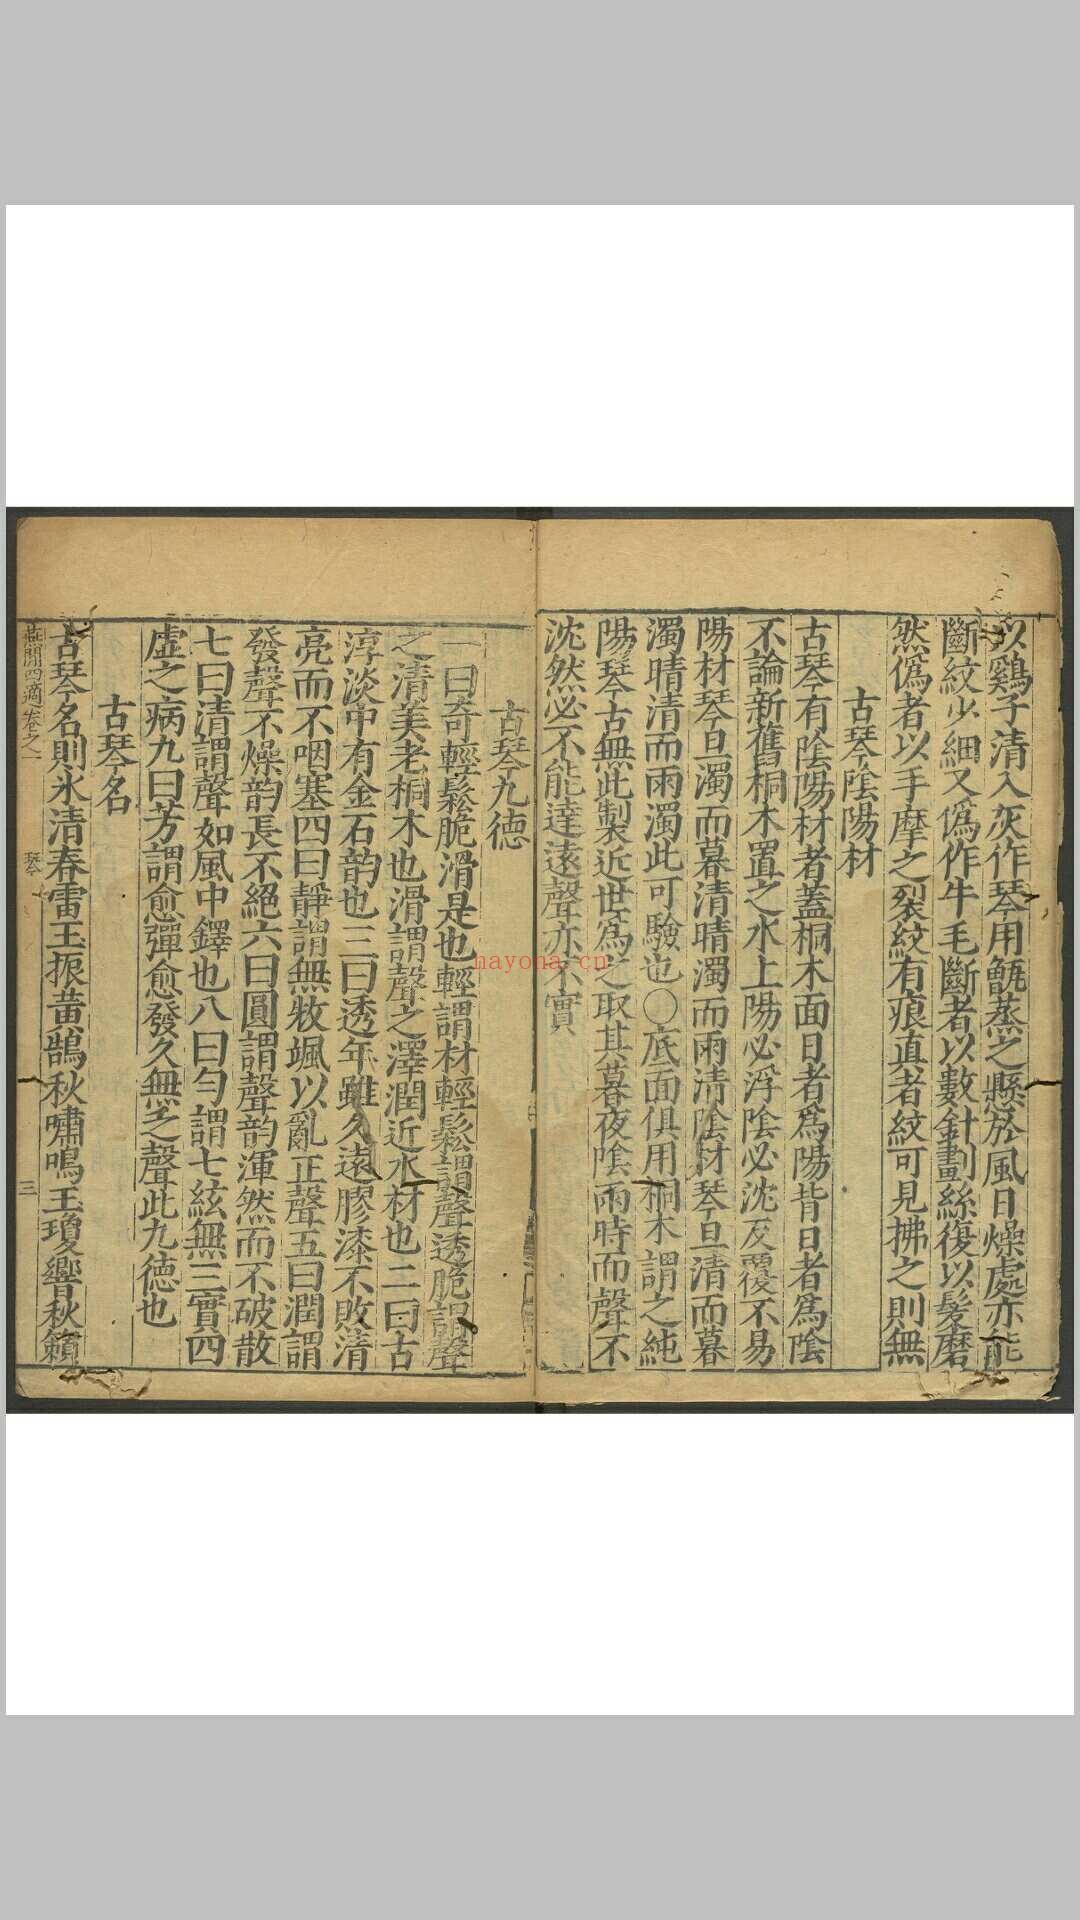 以鷄子清入灰作琴用甑蒸之懸於風日燥處亦能
斷紋少細又僞作牛毛斷者以數針劃絲復以髮磨
然僞者以手摩之裂紋有痕真者紋可見拂之則無
古琴陰陽材
古琴有陰陽材者蓋桐木面日者爲陽背日者爲陰
不論新舊桐木置之水上陽必浮陰必沈反覆不易
陽材琴旦濁而暮清晴濁而雨清陰材琴旦清而暮
濁晴清而雨濁此可驗也○底面俱用桐木謂之純
陽琴古無此製近世爲之取其暮夜陰雨時而聲不
沈然必不能達遠聲亦不實
古琴九德
一曰奇輕鬆脆滑是也輕謂材輕鬆謂聲透脆謂聲
之清美老桐木也滑謂聲之澤潤近水材也二曰古
淳淡中有金石韵也三曰透年雖久遠膠漆不敗清
亮而不咽塞四曰靜謂無㪇颯以亂正聲五曰潤謂
發聲不燥韵長不絕六曰圓謂聲韵渾然而不破散
七曰清謂聲如風中鐸也八曰勻謂七絃無三實四
虛之病九曰芳謂愈彈愈發久無乏聲此九德也
古琴名
古琴名則氷清春雷玉振黃鵠秋嘯鳴玉瓊響秋籟
燕閒四適卷之一 琴 三
nayona.cn